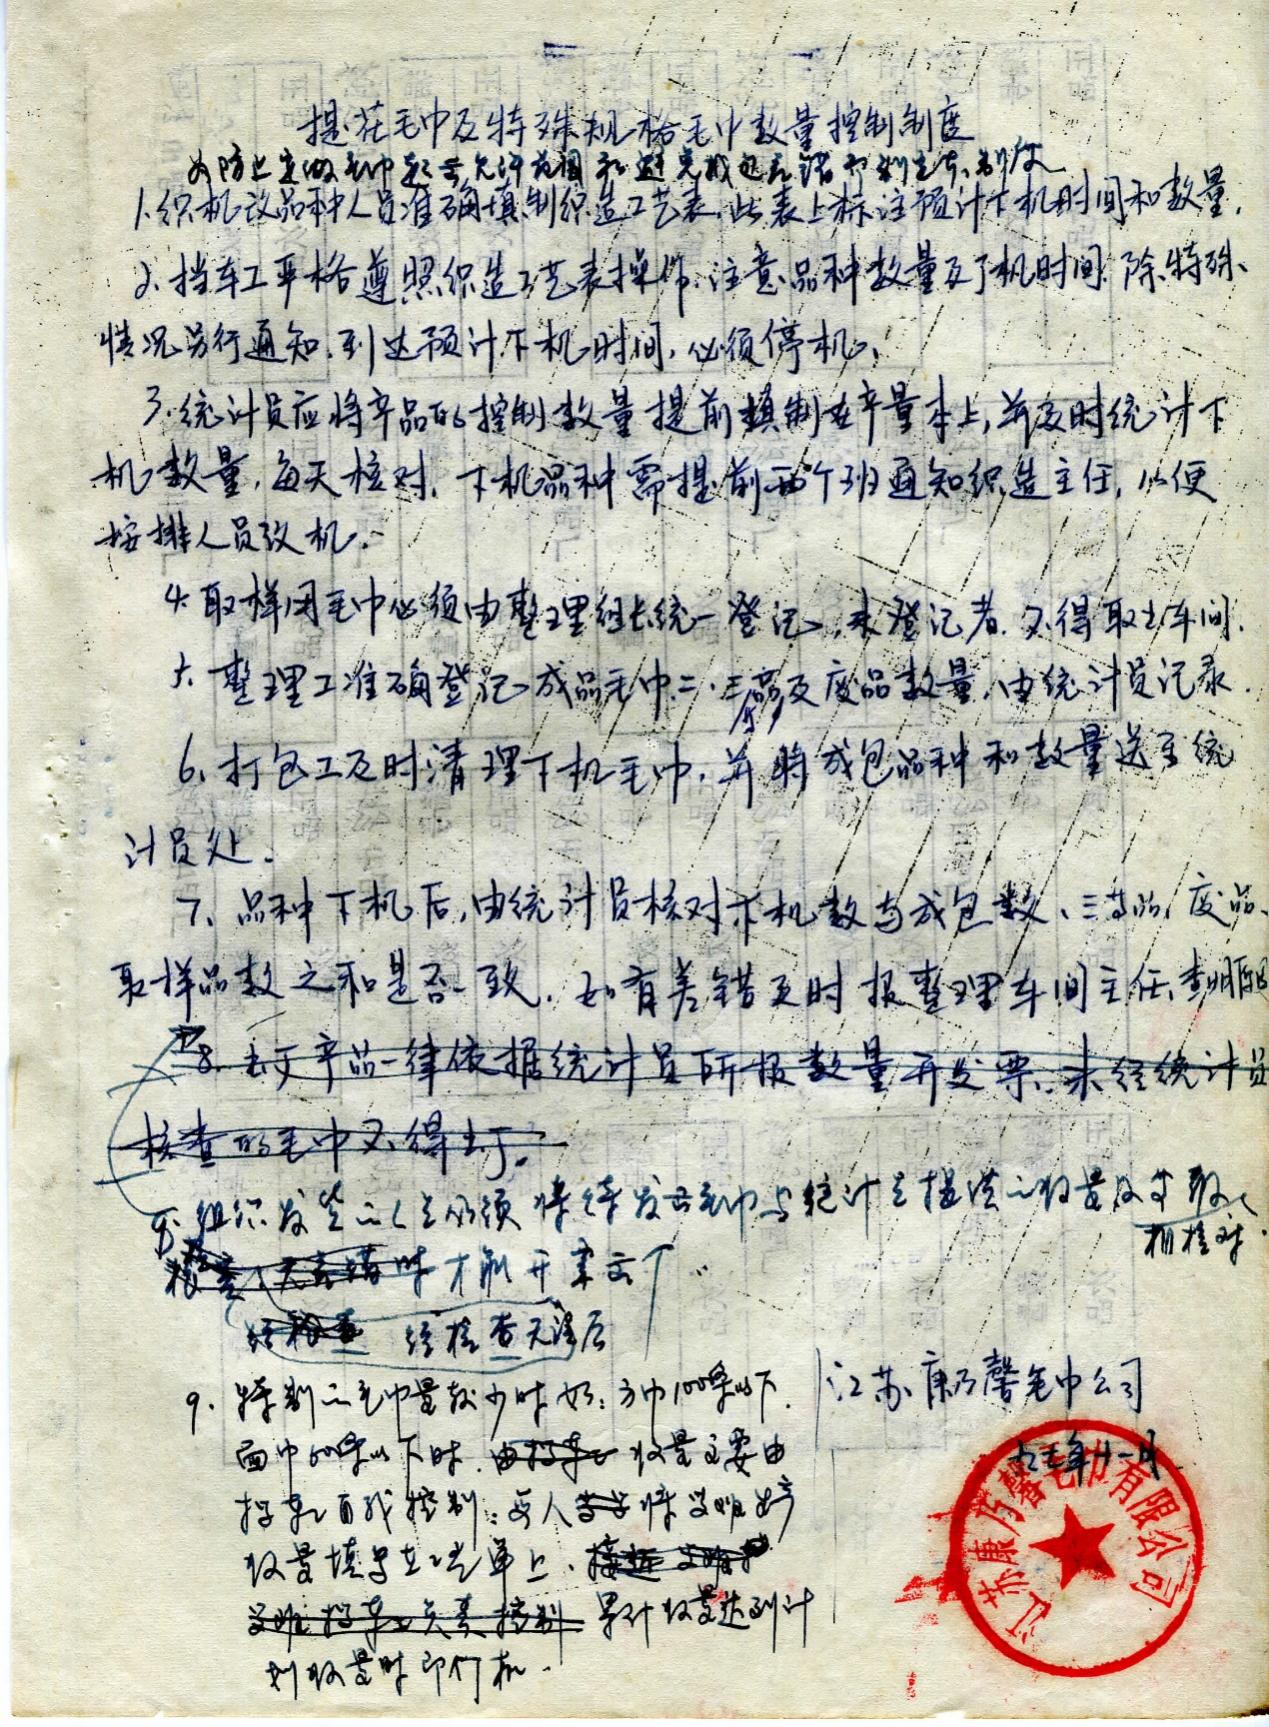 提花毛巾及特殊规格毛巾数量控制制度
为防止定做毛巾超出允许范围和避免成包差错
1.织机改品种人员准确填制织造工艺表,此表上标注预计下机时间和数量.
2、挡车工严格遵照织造工艺表操作.注意品种数量及下机时间.除特殊
情况另行通知.到达预计下机时间,必须停机.
3.统计员应将产品的控制数量提前填制在产量本上,并及时统计下
机数量,每天核对.下机品种需提前两个班通知织造主任,以便
按排人员改机.
4.取样用毛巾必须由整理组长统一登记,未登记者.不得取出车间.
5.整理工准确登记成品毛巾二.三等品及废品数量.由统计员记录.
6.打包工及时清理下机毛巾.并将成包品种和数量送至统
计员处.
7、品种下机后,由统计员核对下机数与成包数、三等品、废品、
取样品数之和是否一致.如有差错及时报整理车间主任、查明原因
8.出厂产品一律依据统计员所报数量开发票.未经统计员
核查的毛巾不得出厂。
8.组织发货的人员必须将待发出毛巾与统计员提供的数量及等级
相核对.
核查、无差错时才能开票出厂
经检查 经检查无误后
9.特别的毛巾量较少时如:方巾100条以下.
面巾60条以下时.数量主要由
挡车工自我控制:每人将当班生产
数量填写在工艺单上、
当班挡车工负责控制 累计数量达到计
划数量时即停机.
江苏康乃馨毛巾公司
九七年十一月
江苏康乃馨毛巾有限公司